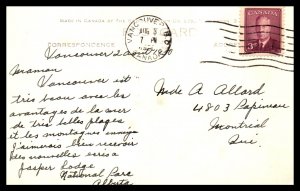 MADE IN CANADA
CORRESPONDENCE
VANCOUVER
AUG 5
7 PM
CANADA
CANADA
3
Vancouver 2 aout
Maman
Vancouver est
très beau avec les
avantages de la mer
de très belles plages
et les montagnes
J'aimerais bien recevoir
des nouvelles
Jasper Lodge
National Park
Alberta
Mde A Allard
4803 Papineau
Montréal
Que.